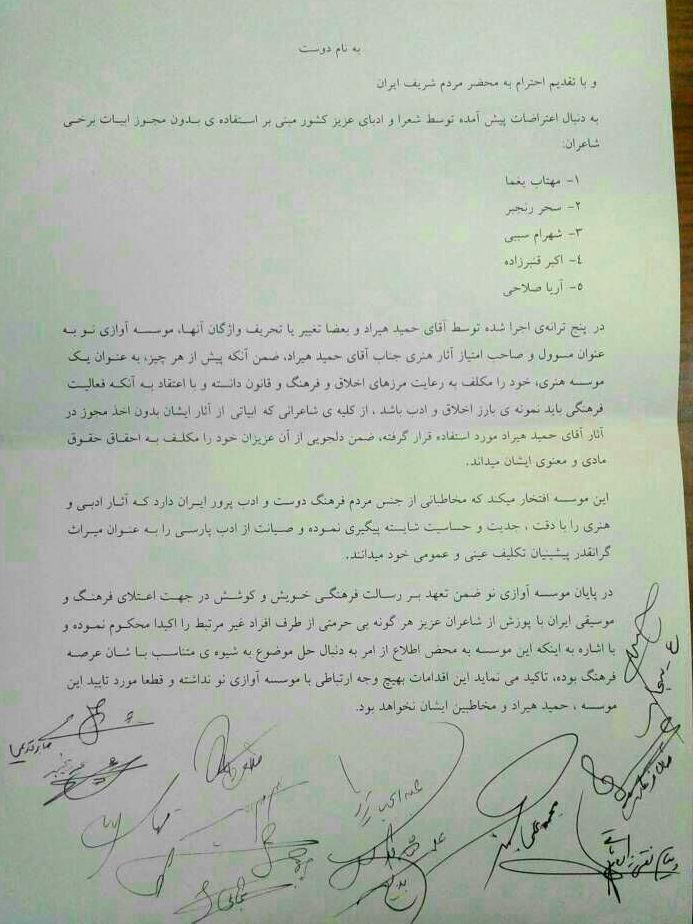 به نام دوست
و با تقدیم احترام به محضر مردم شریف ایران
به دنبال اعتراضات پیش آمده توسط شعرا و ادبای عزیز کشور مبنی بر استفاده ی بدون مجوز ابیات برخی
شاعران:
۱- مهتاب یغما
۲- سحر رنجبر
۳- شهرام سببی
۴- اکبر قنبرزاده
۵- آریا صلاحی
در پنج ترانه‌ی اجرا شده توسط آقای حمید هیراد و بعضا تغییر یا تحریف واژگان آنها، موسسه آوازی نو به
عنوان مسوول و صاحب امتیاز آثار هنری جناب آقای حمید هیراد، ضمن آنکه پیش از هر چیز، به عنوان یک
موسسه هنری، خود را مکلف به رعایت مرزهای اخلاق و فرهنگ و قانون دانسته و با اعتقاد به آنکه فعالیت
فرهنگی باید نمونه ی بارز اخلاق و ادب باشد ، از کلیه ی شاعرانی که ابیاتی از آثار ایشان بدون اخذ مجوز در
آثار آقای حمید هیراد مورد استفاده قرار گرفته، ضمن دلجویی از آن عزیزان خود را مکلف به احقاق حقوق
مادی و معنوی ایشان میداند.
این موسسه افتخار میکند که مخاطبانی از جنس مردم فرهنگ دوست و ادب پرور ایران دارد که آثار ادبی و
هنری را با دقت ، جدیت و حساسیت شایسته پیگیری نموده و صیانت از ادب پارسی را به عنوان میراث
گرانقدر پیشینیان تکلیف عینی و عمومی خود میدانند.
در پایان موسسه آوازی نو ضمن تعهد بر رسالت فرهنگی خویش و کوشش در جهت اعتلای فرهنگ و
موسیقی ایران با پوزش از شاعران عزیز هر گونه بی حرمتی از طرف افراد غیر مرتبط را اکیدا محکوم نموده و
با اشاره به اینکه این موسسه به محض اطلاع از امر به دنبال حل موضوع به شیوه ی متناسب با شان عرصه
فرهنگ بوده، تاکید می نماید این اقدامات بهیچ وجه ارتباطی با موسسه آوازی نو نداشته و قطعا مورد تایید این
موسسه ، حمید هیراد و مخاطبین ایشان نخواهد بود.